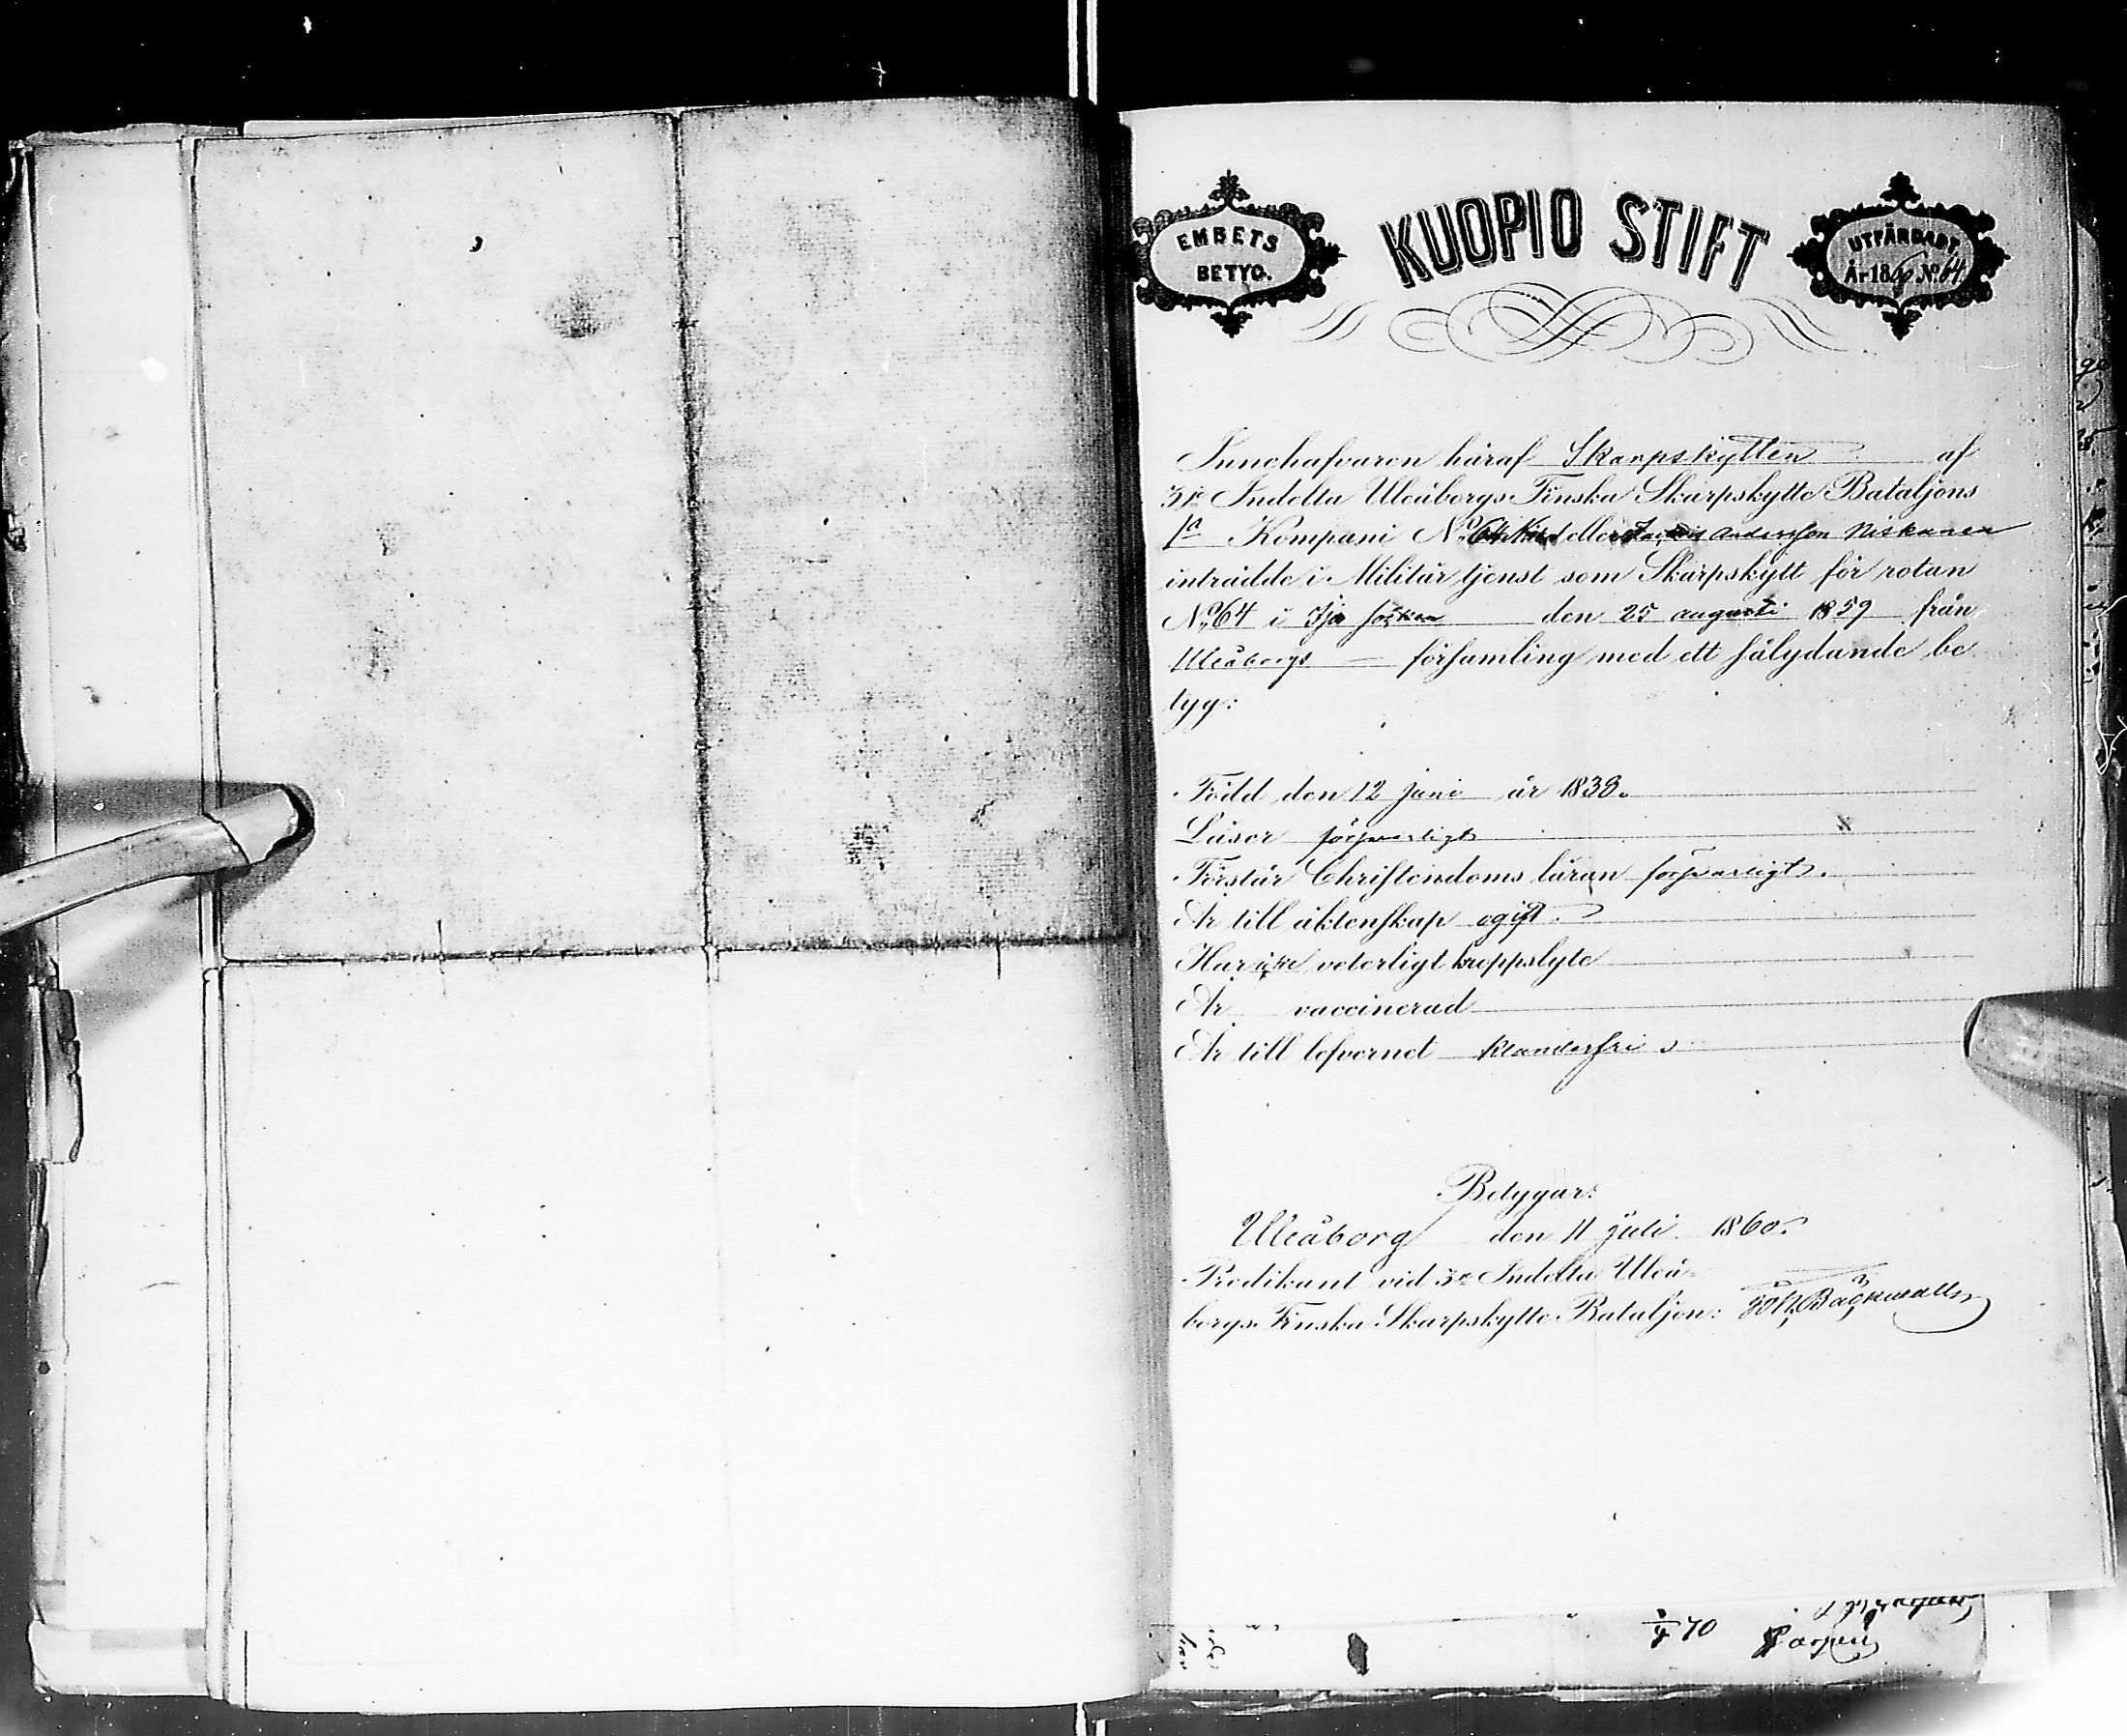 EMBETS
BETYG.
KUOPIO STIFT
UTFÄRDADT
År 1860 No. 64.
Innehafvaren häraf Skarpskytten af
3je Indelta Uleåborgs Finska Skarpskytte Bataljons
1a Kompani No 64 eller Andersson Niskanen
inträdde i Militär tjenst som Skarpskytt för rotan
No 64 i Ijo socken den 25 augusti 1859 från
Uleåborgs församling med ett sålydande be
tyg:
Född den 12 juni år 1838.
Läser försvarligt
Förstår Christendoms läran försvarligt.
Är till äktenskap ogift.
Har icke veterligt kroppslyte
Är vaccinerad
Är till lefvernet klanderfri
Betygar:
Uleåborg den 11 juli 1860.
Predikant vid 3je Indelta Uleå-
borgs Finska Skarpskytte Bataljon: Joh. Bäckwall
70